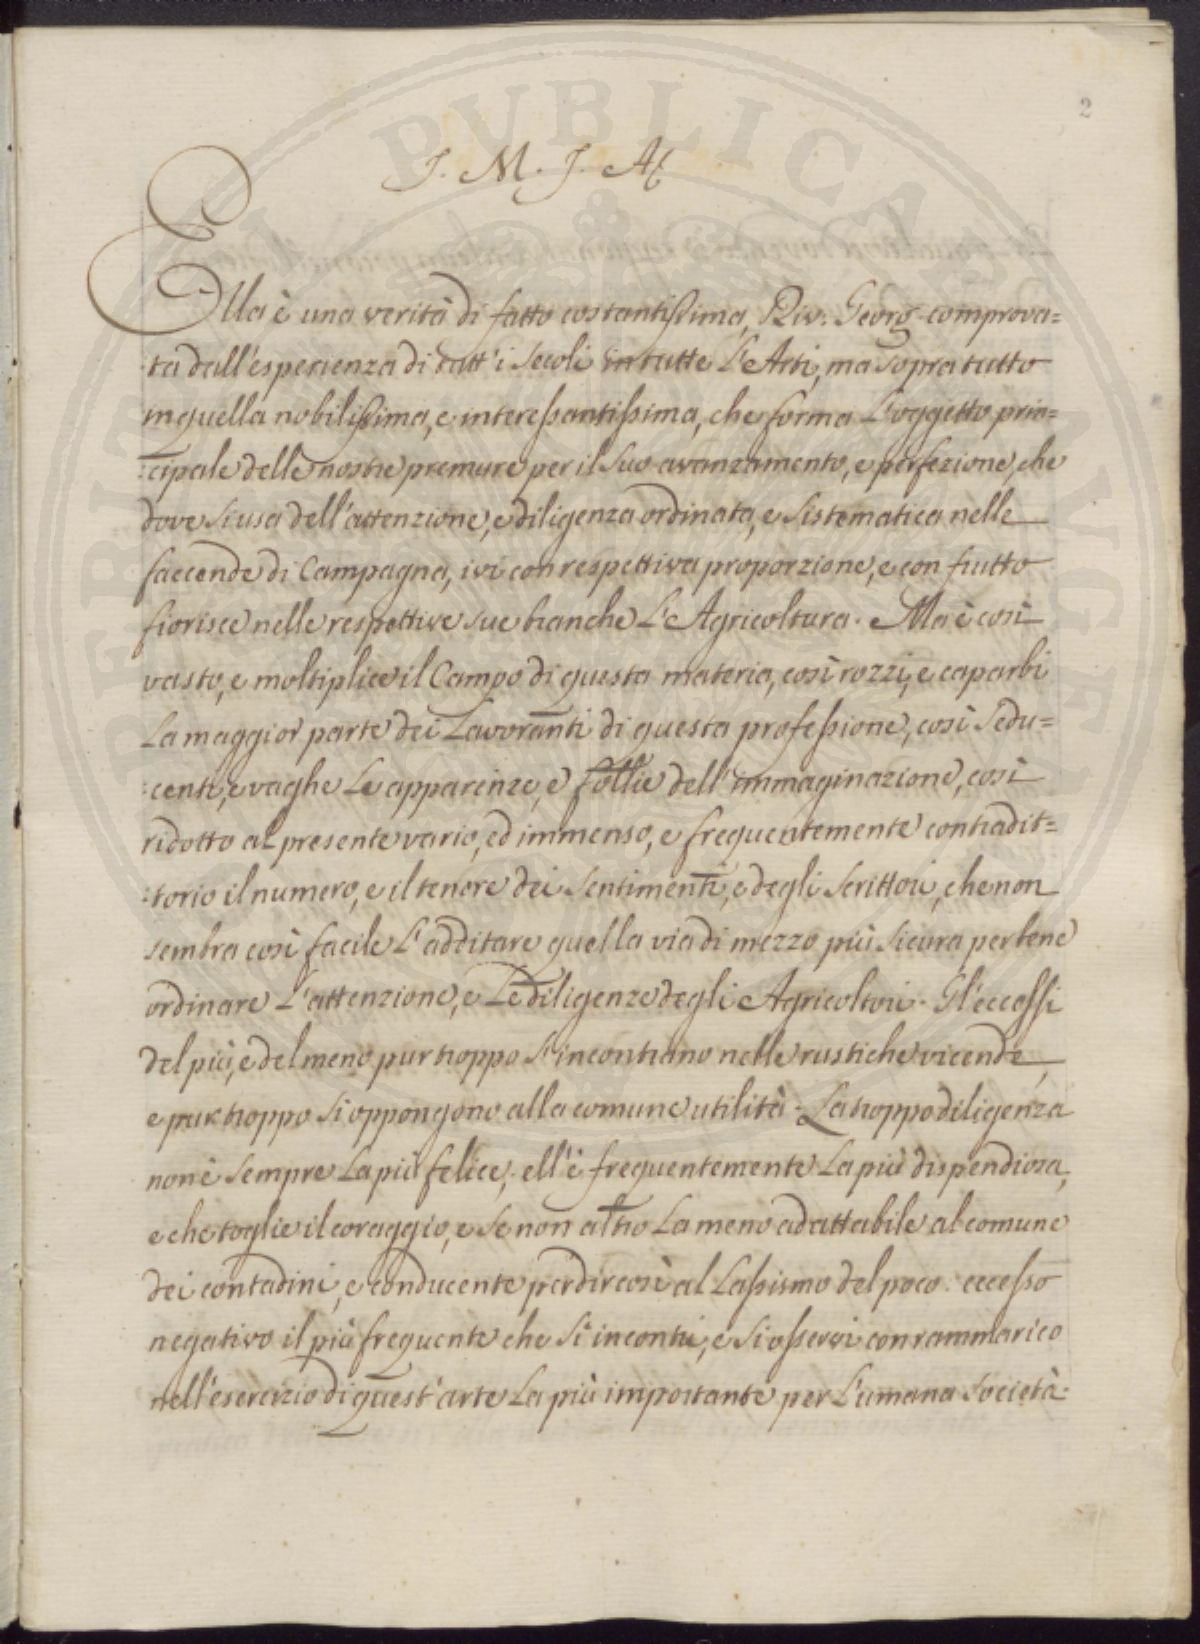 2
J. M. J. A
Ella è una verità di fatto costantissima, Riv. Georg. comprova=
ta dall'esperienza di tutt'i Secoli in tutte L'Arti, ma sopra tutto
in quella nobilissima, e interessantissima, che forma L'oggetto prin=
:cipale delle nostre premure per il suo avanzamento, e perfezione, che
dove si usa dell'attenzione, e diligenza ordinata, e sistematica nelle
faccende di Campagna, ivi con respettiva proporzione, e con frutto
fiorisce nelle respettive sue branche L'Agricoltura. Ma è così
vasto, e moltiplice il Campo di questa materia, così rozzi, e caparbi
La maggior parte dei Lavoranti di questa professione, così Sedu=
:centi, e vaghe Le apparenze, e follie dell'immaginazione, così
ridotto al presente vario, ed immenso, e frequentemente contradit=
:torio il numero, e il tenore dei Sentimenti, e degli Scrittori, che non
sembra così facile L'additare quella via di mezzo più sicura per bene
ordinare L'attenzione, e Le diligenze degli Agricoltori. Gl'eccessi
del più, e del meno pur troppo s'incontrano nelle rustiche vicende,
e pur troppo si oppongono alla comune utilità. La troppo diligenza
non è sempre La più felice; ell'è frequentemente La più dispendiosa,
e che toglie il coraggio, e se non altro La meno adattabile al comune
dei contadini, e conducente per dir così al Lassismo del poco. eccesso
negativo il più frequente che si incontri, e si osservi con rammarico
nell'esercizio di quest'arte La più importante per L'umana Società: